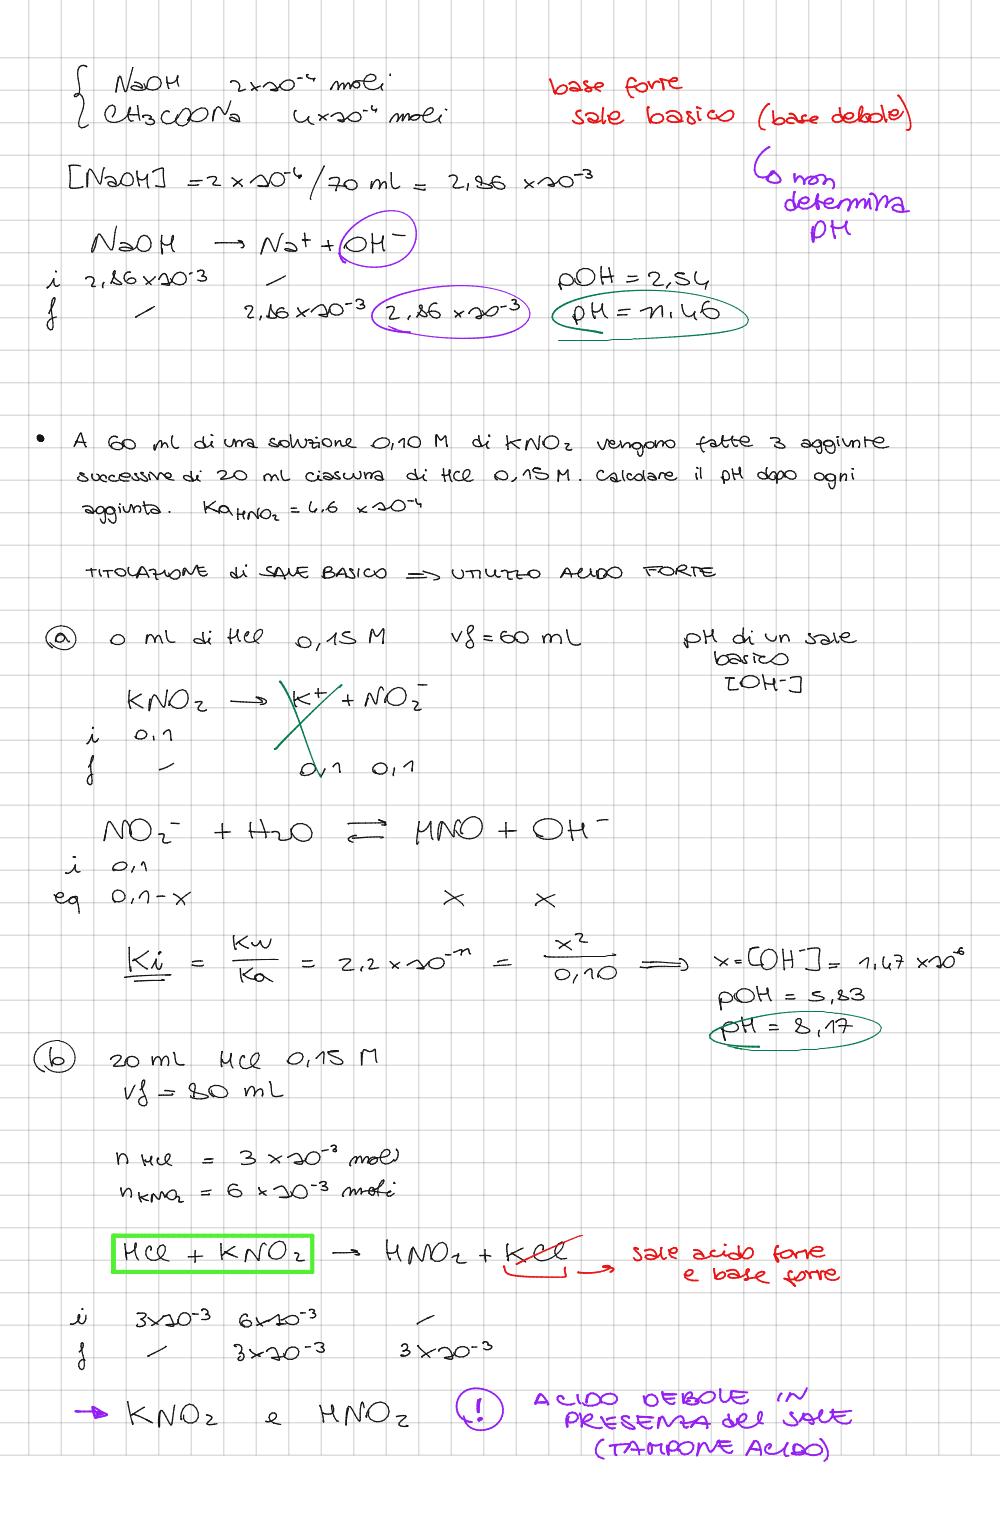 { NaOH 2×10⁻⁴ moli base forte
CH3COONa 4×10⁻⁴ moli sale basico (base debole)
[NaOH] = 2 × 10⁻⁴ / 70 ml = 2,86 × 10⁻³ ↳ non
determina
pH
NaOH → Na⁺ + OH⁻
i 2,86×10⁻³ / pOH = 2,54
f / 2,86×10⁻³ 2,86 ×10⁻³ pH = 11,46
• A 60 ml di una soluzione 0,10 M di KNO₂ vengono fatte 3 aggiunte
successive di 20 ml ciascuna di HCl 0,15 M. Calcolare il pH dopo ogni
aggiunta. Ka HNO₂ = 4,6 × 10⁻⁴
TITOLAZIONE di SALE BASICO ⇒ UTILIZZO ACIDO FORTE
ⓐ 0 ml di HCl 0,15 M Vf = 60 ml pH di un sale
basico
[OH⁻]
KNO₂ → K⁺ + NO₂⁻
i 0,1
f / 0,1 0,1
NO₂⁻ + H₂O ⇌ HNO + OH⁻
i 0,1
eq 0,1-x x x
Ki = Kw/Ka = 2,2 × 10⁻¹¹ = x²/0,10 ⇒ x = [OH⁻] = 1,47 × 10⁻⁶
pOH = 5,83
pH = 8,17
ⓑ 20 ml HCl 0,15 M
Vf = 80 ml
n HCl = 3 × 10⁻³ moli
n KNO₂ = 6 × 10⁻³ moli
HCl + KNO₂ → HNO₂ + KCl → sale acido forte
e base forte
i 3×10⁻³ 6×10⁻³ /
f / 3×10⁻³ 3×10⁻³
→ KNO₂ e HNO₂ ! ACIDO DEBOLE IN
PRESENZA del SALE
(TAMPONE ACIDO)